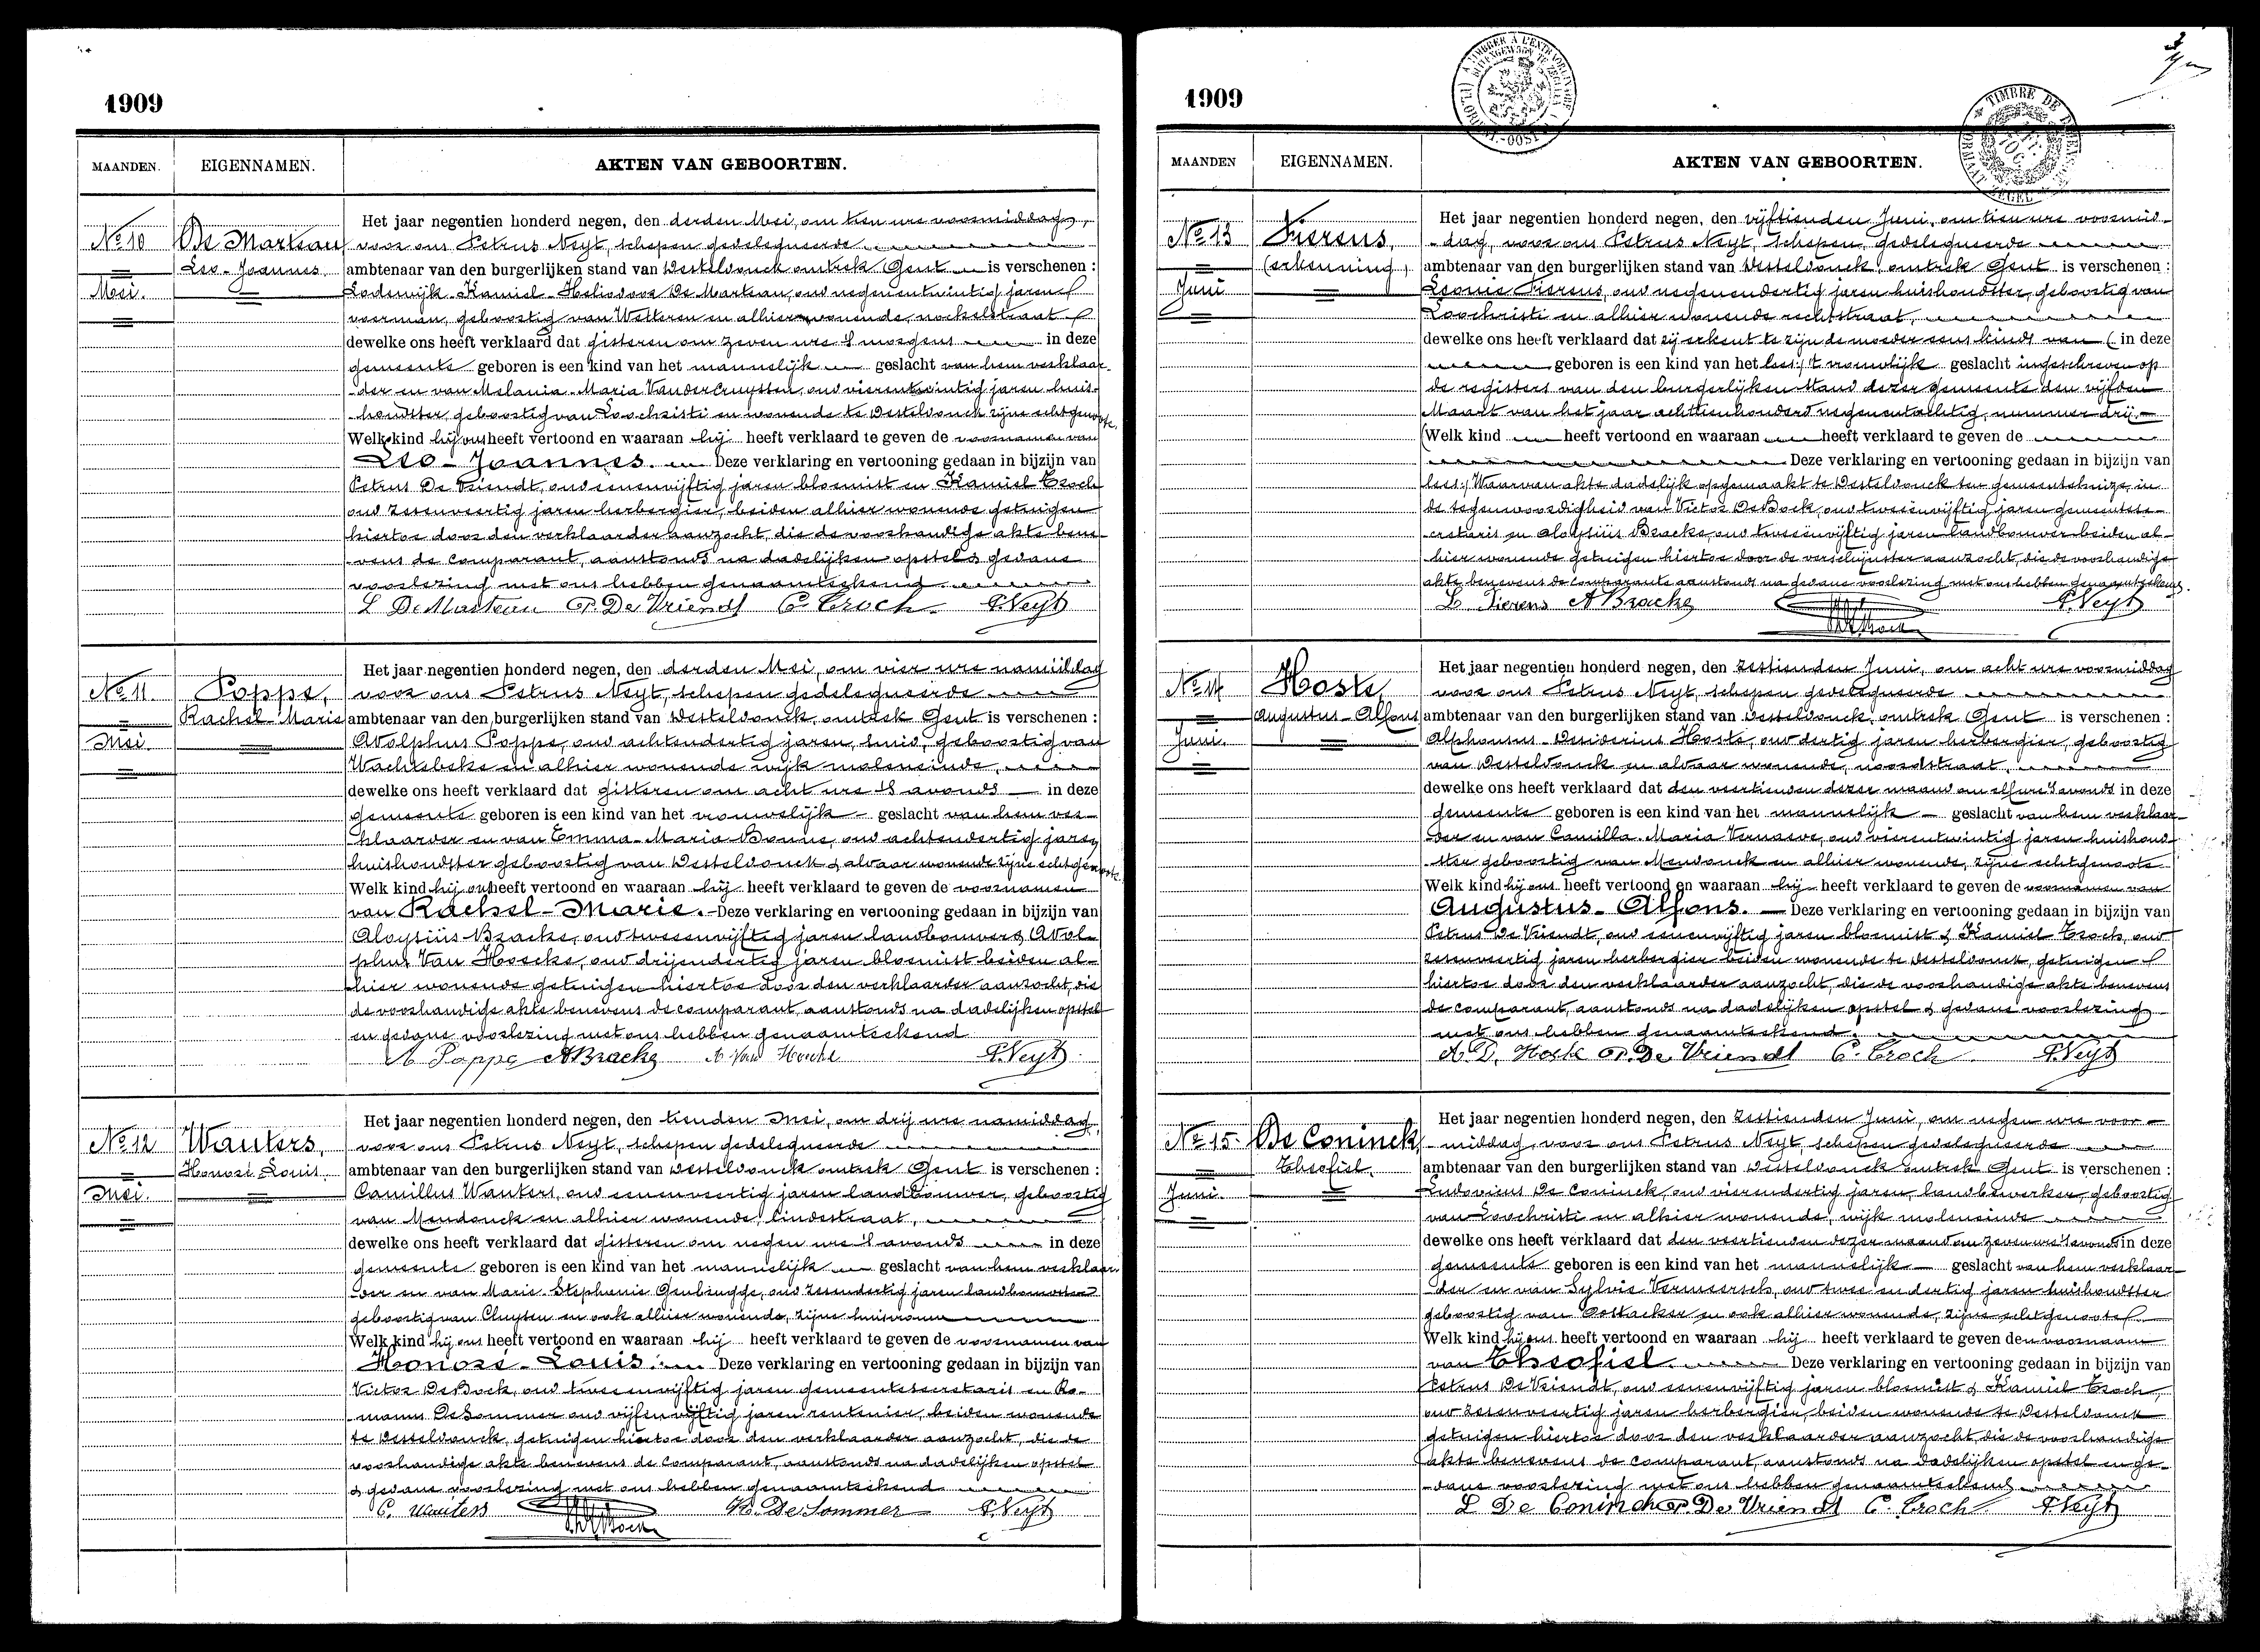 1909
MAANDEN. EIGENNAMEN. AKTEN VAN GEBOORTEN.
No 10
Mei.
De Marteau
Leo-Joannes
Het jaar negentien honderd negen, den derden Mei, om tien ure voormiddag,
voor ons Petrus Neyt, schepen gedelegueerde
ambtenaar van den burgerlijken stand van Desteldonck omtrek Gent is verschenen :
Lodewijk-Kamiel-Heliodoor De Marteau, oud negenentwintig jaren
voerman, geboortig van Wetteren en alhier wonende,
dewelke ons heeft verklaard dat gisteren om zeven ure 's morgens in deze
gemeente geboren is een kind van het mannelijk geslacht van hem verklaar-
der en van Melania-Maria Vandercruyssen, oud vierentwintig jaren huis-
houdster geboortig van Loochristi en wonende te Desteldonck zijne echtgenoote.
Welk kind hij ons heeft vertoond en waaraan hij heeft verklaard te geven de voornamen van
Leo-Joannes. Deze verklaring en vertooning gedaan in bijzijn van
Petrus De Vriendt, oud eenenvijftig jaren bloemist en Kamiel Croch
oud zesenveertig jaren herbergier, beiden alhier wonende getuigen
hiertoe door den verklaarder aanzocht, die de voorhandige akte bene-
vens de comparant, aanstonds na dadelijken opstel & gedane
voorlezing met ons hebben genaamteekend
L DeMarteau P. De Vriendt C. Croch. P. Neyt
No 11
Mei.
Poppe,
Rachel-Marie
Het jaar negentien honderd negen, den derden Mei, om vier ure namiddag
voor ons Petrus Neyt, schepen gedelegueerde
ambtenaar van den burgerlijken stand van Desteldonck, omtrek Gent is verschenen :
Adolphus Poppe, oud achtendertig jaren, smid, geboortig van
Wachtebeke en alhier wonende wijk moleneinde,
dewelke ons heeft verklaard dat gisteren om acht ure 's avonds in deze
gemeente geboren is een kind van het vrouwelijk geslacht van hem ver-
klaarder en van Emma-Maria Bonne, oud achtendertig jaren
huishoudster geboortig van Desteldonck & aldaar wonende zijne echtgenoote.
Welk kind hij ons heeft vertoond en waaraan hij heeft verklaard te geven de voornamen
van Rachel-Marie. Deze verklaring en vertooning gedaan in bijzijn van
Aloysiüs Bracke, oud tweeenvijftig jaren landbouwer & Adol-
phus Van Hoecke, oud drijendertig jaren bloemist beiden al-
hier wonende getuigen hiertoe door den verklaarder aanzocht, die
de voorhandige akte benevens de comparant, aanstonds na dadelijken opstel
en gedane voorlezing met ons hebben genaamteekend
A Poppe ABracke A Van Hoecke P. Neyt
No 12
Mei.
Wauters,
Honoré-Louis
Het jaar negentien honderd negen, den tienden Mei, om drij ure namiddag,
voor ons Petrus Neyt, schepen gedelegueerde
ambtenaar van den burgerlijken stand van Desteldonck omtrek Gent is verschenen :
Camillus Wauters, oud eenenveertig jaren landbouwer, geboortig
van Mendonck en alhier wonende, lindestraat,
dewelke ons heeft verklaard dat gisteren om negen ure 's avonds in deze
gemeente geboren is een kind van het mannelijk geslacht van hem verklaar-
der en van Marie-Stephanie Genbrugge, oud zesendertig jaren
geboortig van Cluysen en ook alhier wonende, zijne huisvrouw
Welk kind hij ons heeft vertoond en waaraan hij heeft verklaard te geven de voornamen van
Honoré-Louis. Deze verklaring en vertooning gedaan in bijzijn van
Victor DeBock, oud tweeenvijftig jaren gemeentesecretaris en Ro-
manus DeSommer oud vijfenvijftig jaren rentenier, beiden wonende
te Desteldonck, getuigen hiertoe door den verklaarder aanzocht, die de
voorhandige akte benevens de comparant, aanstonds na dadelijken opstel
& gedane voorlezing met ons hebben genaamteekend
C. Wauters R. De Sommer P. Neyt
1909
MAANDEN EIGENNAMEN. AKTEN VAN GEBOORTEN.
No 13
Juni
Fierens,
(erkenning)
Het jaar negentien honderd negen, den vijftienden Juni, om tien ure voormid-
dag, voor ons Petrus Neyt, schepen, gedelegueerde
ambtenaar van den burgerlijken stand van Desteldonck, omtrek Gent is verschenen :
Leonie Fierens, oud negenendertig jaren huishoudster, geboortig van
Loochristi en alhier wonende rechtstraat,
dewelke ons heeft verklaard dat zij erkent te zijn de moeder eens kinds van (in deze
geboren is een kind van het lees:) 't vrouwelijk geslacht ingeschreven op
de registers van den burgerlijken stand dezer gemeente den vijfden
Maart van het jaar achttienhonderd negenentachtig, nummer drij.
(Welk kind heeft vertoond en waaraan heeft verklaard te geven de
Deze verklaring en vertooning gedaan in bijzijn van
lees:) Waarvan akte dadelijk opgemaakt te Desteldonck ten gemeentehuize, in
de tegenwoordigheid van Victor DeBock, oud tweeenvijftig jaren gemeentese-
cretaris en Aloysiüs Bracke, oud tweeenvijftig jaren landbouwer beiden al-
hier wonende getuigen hiertoe door de verschijnster aanzocht, die de voorhandige
akte benevens de comparante aanstonds na gedane voorlezing met ons hebben genaamteekend.
L. Fierens A Bracke P. Neyt
No 14
Juni.
Hoste,
Augustus-Alfons
Het jaar negentien honderd negen, den zestienden Juni, om acht ure voormiddag
voor ons Petrus Neyt, schepen gedelegueerde
ambtenaar van den burgerlijken stand van Desteldonck, omtrek Gent is verschenen :
Alphonsus-Desiderius Hoste, oud dertig jaren herbergier, geboortig
van Desteldonck en aldaar wonende, noordstraat,
dewelke ons heeft verklaard dat den veertienden dezer maand om elf ure 's avonds in deze
gemeente geboren is een kind van het mannelijk geslacht van hem verklaar-
der en van Camilla-Maria Vernaeve, oud vierentwintig jaren huishoud-
ster geboortig van Mendonck en alhier wonende, zijne echtgenoote
Welk kind hij ons heeft vertoond en waaraan hij heeft verklaard te geven de voornamen van
Augustus-Alfons. Deze verklaring en vertooning gedaan in bijzijn van
Petrus De Vriendt, oud eenenvijftig jaren bloemist & Kamiel Croch, oud
zesenveertig jaren herbergier beiden wonende te Desteldonck, getuigen
hiertoe door den verklaarder aanzocht, die de voorhandige akte benevens
de comparant, aanstonds na dadelijken opstel & gedane voorlezing
met ons hebben genaamteekend.
A. D. Hoste P. De Vriendt C. Croch P. Neyt
No 15
Juni
De Coninck,
Theofiel.
Het jaar negentien honderd negen, den zestienden Juni, om negen ure voor-
middag, voor ons Petrus Neyt, schepen gedelegueerde
ambtenaar van den burgerlijken stand van Desteldonck omtrek Gent is verschenen :
Ludovicus De Coninck, oud vierendertig jaren, landbewerker, geboortig
van Loochristi en alhier wonende, wijk moleneinde
dewelke ons heeft verklaard dat den veertienden dezer maand om zeven ure 's avonds in deze
gemeente geboren is een kind van het mannelijk geslacht van hem verklaar-
der en van Sylvie Vermeersch, oud twee en dertig jaren huishoudster
geboortig van Oostacker en ook alhier wonende, zijne echtgenoote
Welk kind hij ons heeft vertoond en waaraan hij heeft verklaard te geven den voornaam
van Theofiel. Deze verklaring en vertooning gedaan in bijzijn van
Petrus De Vriendt, oud eenenvijftig jaren bloemist & Kamiel Croch,
oud zesenveertig jaren herbergier, beiden wonende te Desteldonck
getuigen hiertoe door den verklaarder aanzocht die de voorhandige
akte benevens de comparant, aanstonds na dadelijken opstel en ge-
dane voorlezing met ons hebben genaamteekend
L De Coninck P. De Vriendt C. Croch P. Neyt